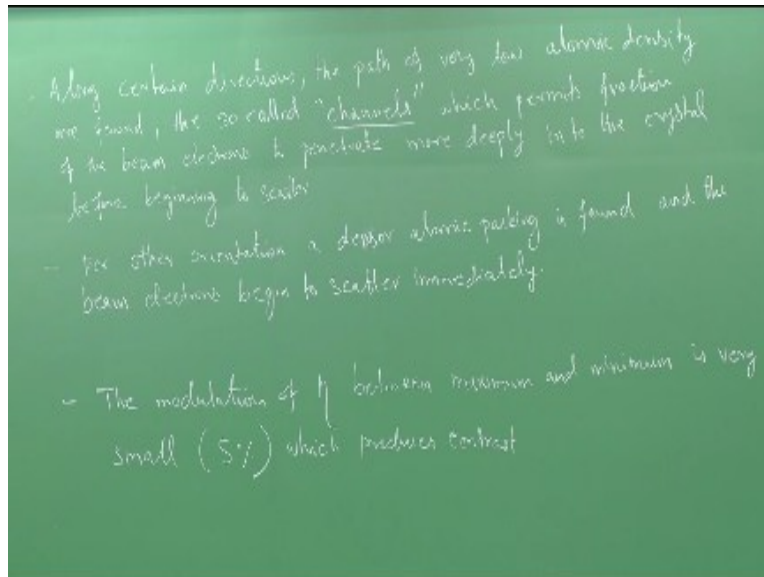 - Along certain directions, the path of very low atomic density
are found, the so called "channels" which permits fraction
of the beam electrons to penetrate more deeply in to the crystal
before beginning to scatter
- For other orientation a denser atomic packing is found and the
beam electrons begin to scatter immediately.
- The modulation of η between maximum and minimum is very
small (5%) which produces contrast